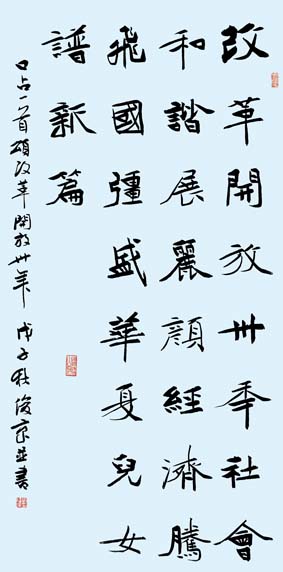 改革開放卅年社會
和諧展麗顔經濟騰
飛國彊盛華夏兒女
譜新篇
口占一首頌改革開放卅年 戊子秋俊京並書